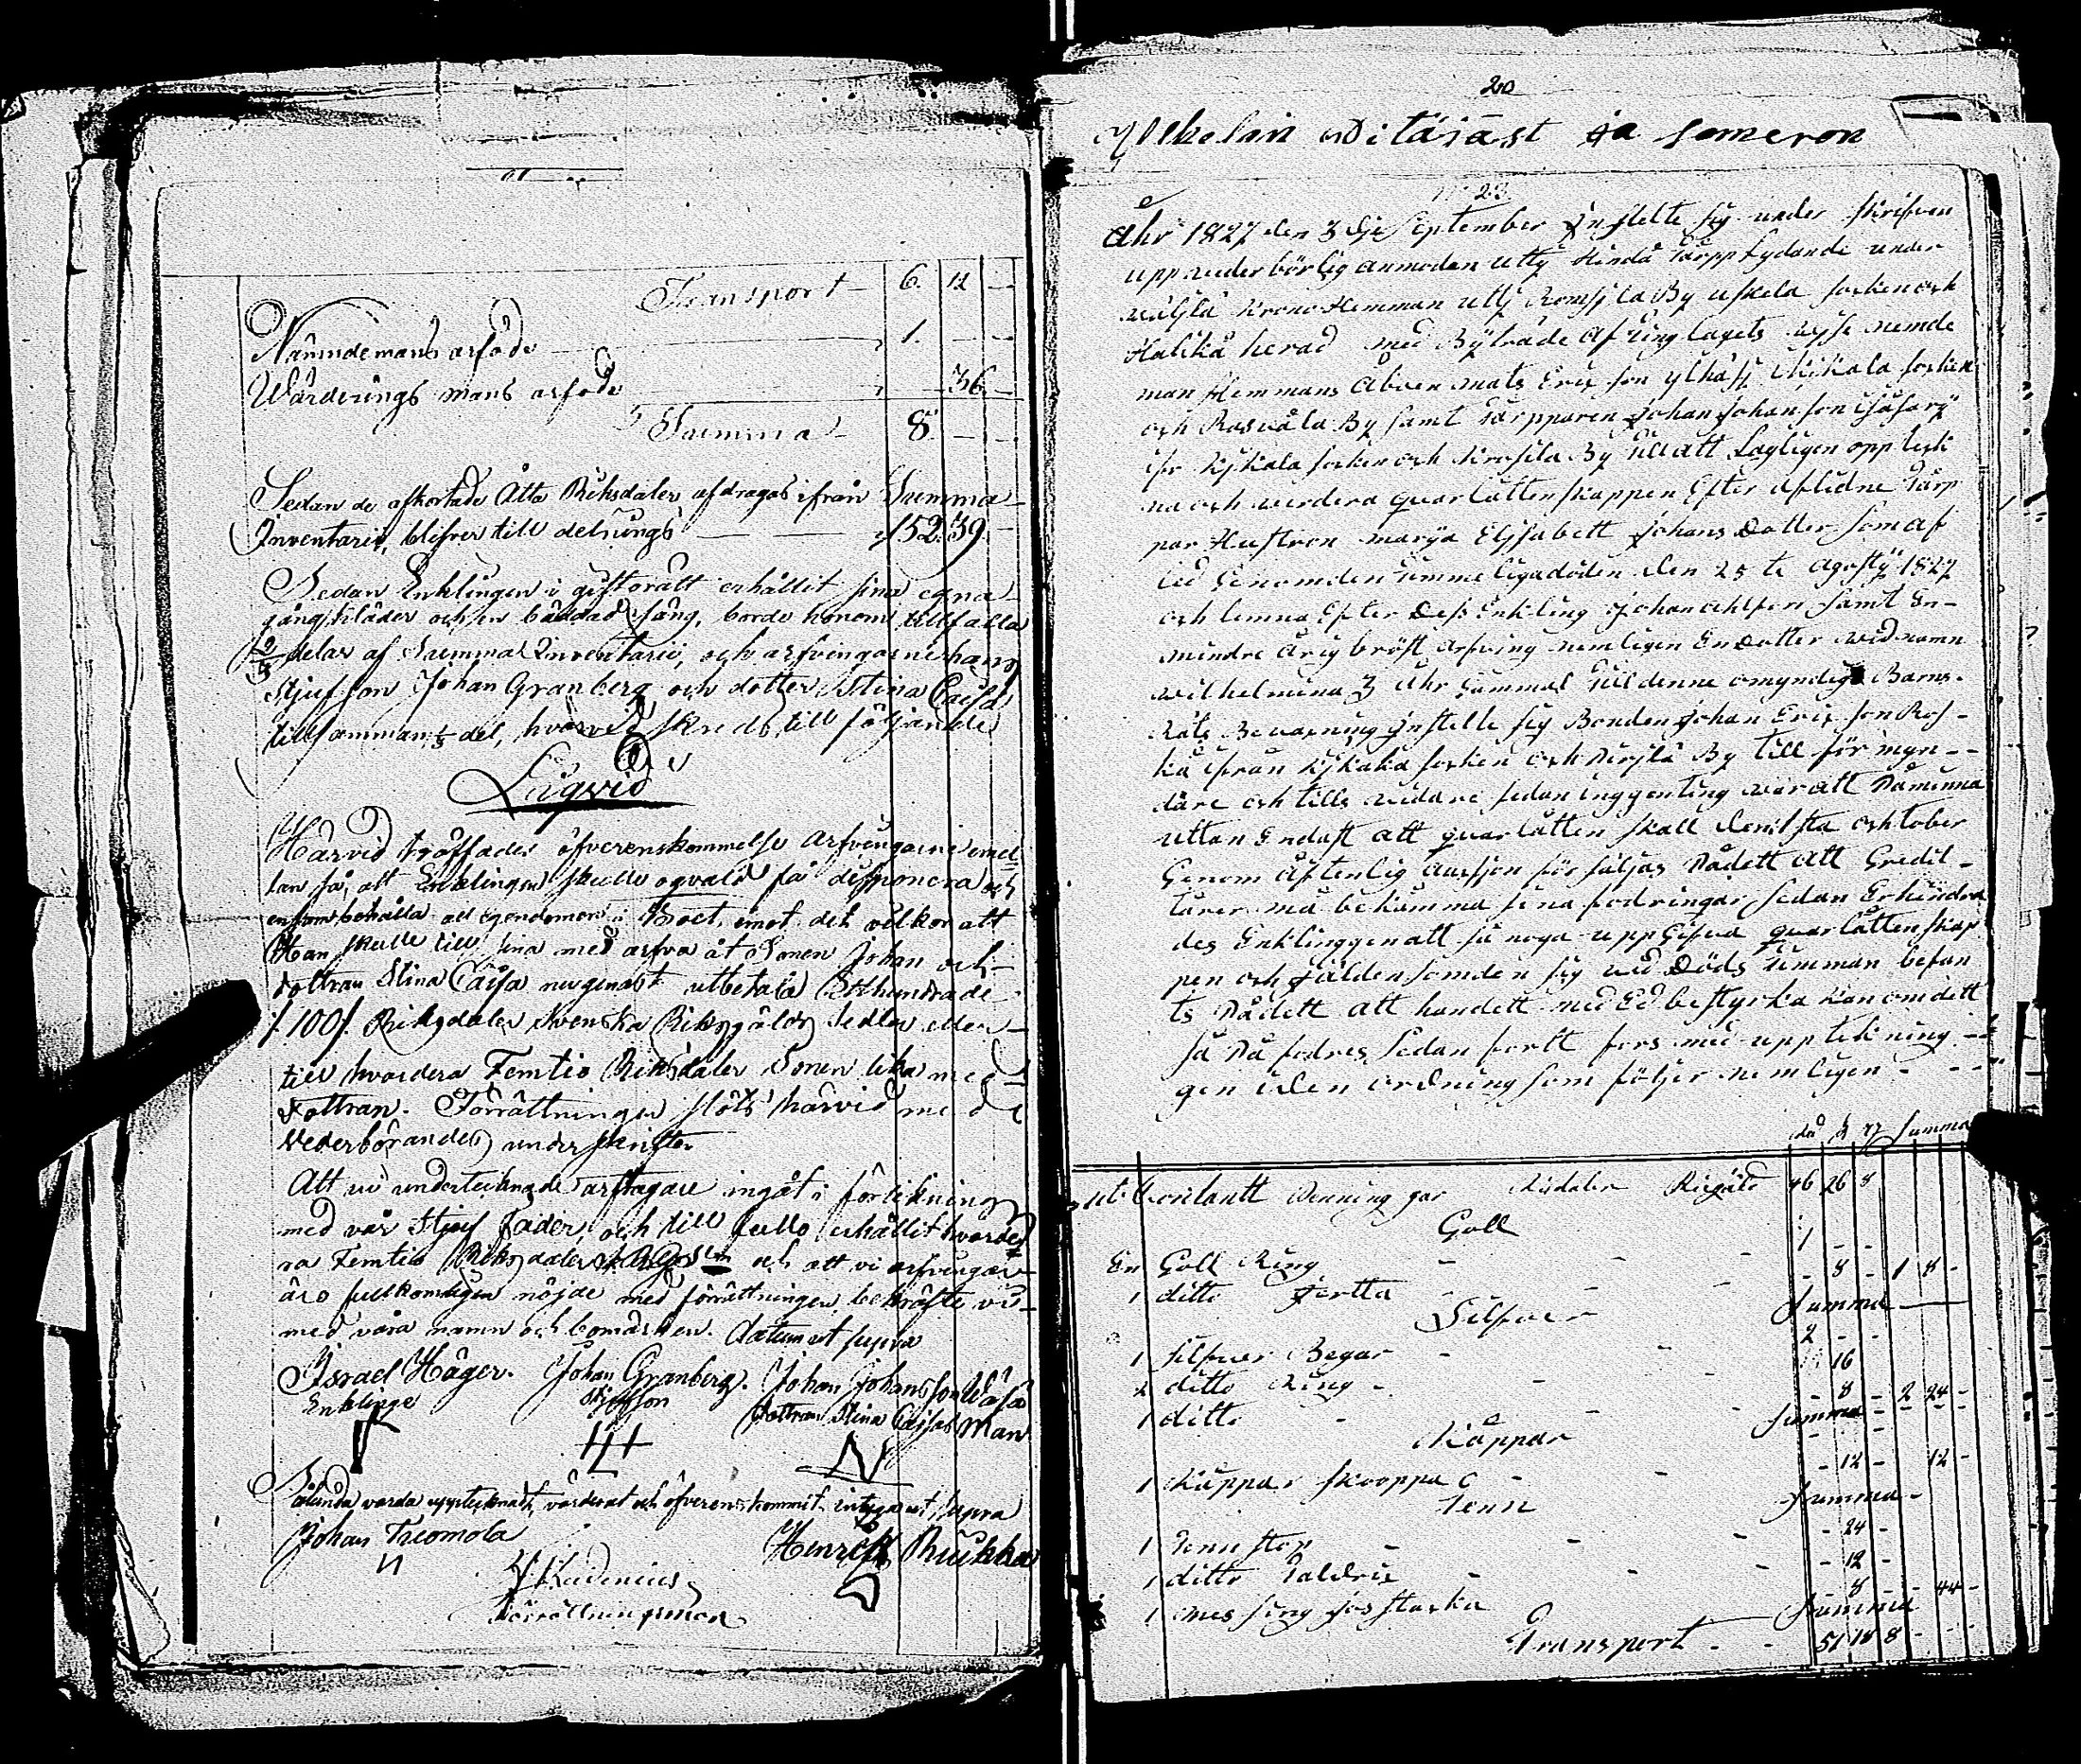 Transport 6. 12 —
Nämndemans arfode 1. — —
Wärderings mans arfode — 36 —
Summa 8 — —
Sedan de afkortade Åtta Riksdaler afdragas ifrån Summa
Inventarii, blifver till delnings 152 39
Sedan Enklingen i giftorätt erhållit sina egna
gångkläder och en bäddad säng, borde honom tillfalla
2/3 delar af Summa Inventarii, och arfvingarne hans
Stjufson Johan Granberg och dotter Stina Caisa
tillsammans 1/3 del, hvarved skreds till följande
Liqvid
Härvid träffades öfverenskommelse arfvingarne emel
lan så, att Enklingen skulle oqvald få disponera och
ensam behålla all egendomen i Boet, emot det vilkor att
Han skulle till sina med arfva åt Sonen Johan och
dottran Stina Caisa nu genast utbetala Etthundrade
/100/. Riksdaler Svenska Riksgälds Sedlar eller
till hvardera Femtio Riksdaler Sonen lika med
dottran. Förrättningen slöts härvid med
Vederbörandes underskrifter
Att vi undertecknade arftagare ingåt i förlikning
med vår Stjuf fader, och till fullo erhållit hvarde
ra Femtio Riksdaler och att vi arfvingar
äro fullkomligen nöjde med förrättningen, bekräfte vi
med våra namn och bomärken. datum ut supra
Israel Häger. Johan Granberg. Johan Johansson Wäsä
Enklinge Stjufson dottran Stina Caisas Man
Sålunda varda upptecknadt, värderat och öfverenskommit intygar ut supra
Johan Tuomola Henrik Ruikka
Förrättningsman
20
Uskelan Pitäjäst ja someron
N 23
Åhr 1827 den 3 dje September Instelte sig under skrifven
uppå vederbörlig anmodan utty Torpp Lydande under
Krono Hemman utty By uskela socken och
Halika herad med Byträde af ting lagets nemde
man Hemmans Åboen mats Erix son Kikala socken
och By samt Torpparen Johan Johan son
ifr Kjkala socken och By till att Lagligen oppteck
na och verdera quarlåttenskappen Efter aflidne Torp
par Hustron marija Elissabett Johans Dotter som af
led Genom den timmeliga döden den 25 te Agosty 1827
och lemna Efter Dess Enkling Johan samt En
mindre årig bröst arfving nemligen En dotter wid namn
wilhelmina 3 Åhr Gammal till denne omyndiga Barns
Räts Bevarning Instelte sig Bonden Johan Erix son Ros-
ka ifrån Kjkala socken och By till för myn-
dare och tills vidare sedan inggenting var att Påminna
uttan Endast att quarlåtten skall den 1 sta ocktober
Genom åftenlig auksjon för säljas Pådett att Credit-
torer må bekomma sina fodringar sedan Erhindra
des Enklinggen att så noga uppgifva quarlåttenskap
pen och gälden som den sig vid Döds timman befan
ts Pådett att han dett med Ed bestyrka kan om dett
så På fodres Sedan fortt fors med uppteckning
gen i den ordning som följer nemligen
Summa
Contantt Penning gar Riksdaler Rigäld 46 26 8
Gull
En Gull Ring 1 - -
1 ditto - 8 - 1 8 -
Summa
Silfver
1 silfver Begar 2 - -
2 ditto Ring 16
1 ditto - 8 - 2 24 -
Summa
Kåppar
1 Kåppar skooppa - 12 - 12 -
Summa
Tenn
1 Tenn stop - 24 -
1 ditto Taldrix - 12 -
1 mes sing - 8 - - 44 -
Summa
Transport 51 18 8